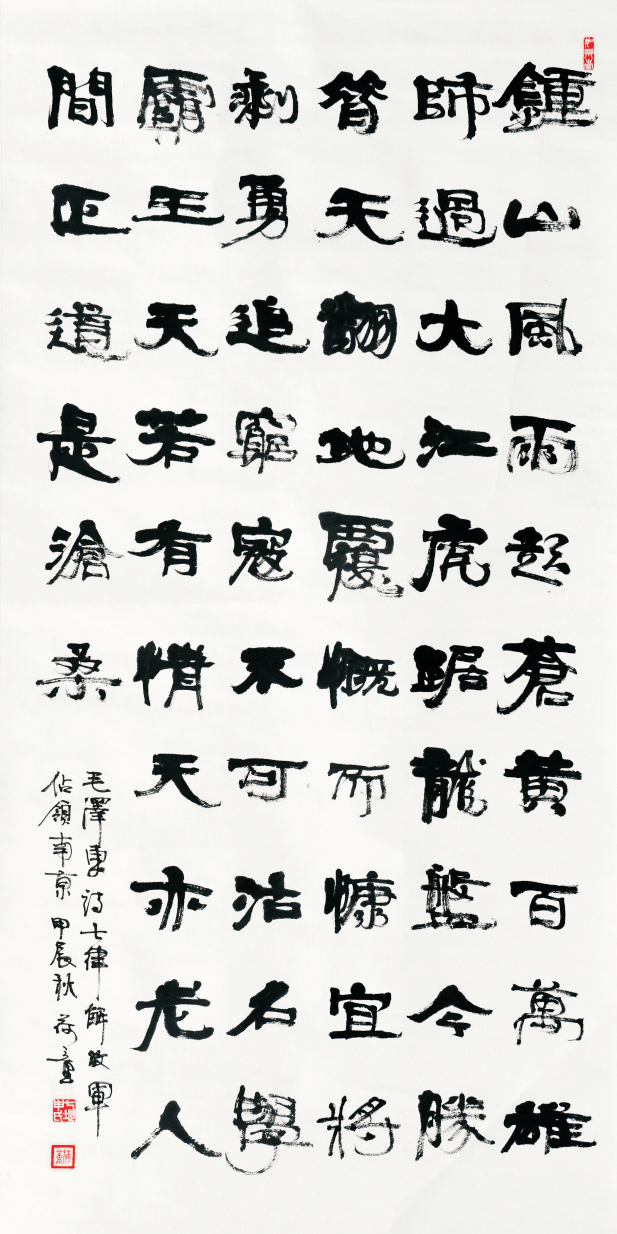 鍾山風雨起蒼黃百萬雄
師過大江虎踞龍盤今勝
昔天翻地覆慨而慷宜將
剩勇追窮寇不可沽名學
霸王天若有情天亦老人
間正道是滄桑
毛澤東詩七律解放軍
佔領南京 甲辰秋